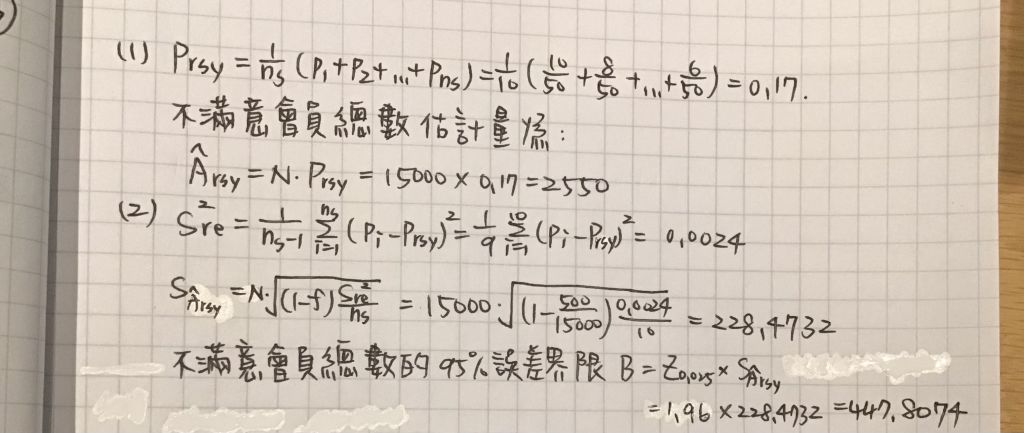 (1) Prsy = 1/ns (P1+P2+...+Pns) = 1/10 (10/50 + 8/50 + ... + 6/50) = 0.17.
不滿意會員總數估計量為:
Ârsy = N·Prsy = 15000 × 0.17 = 2550
(2) Sre² = 1/(ns-1) Σ(i=1→ns) (Pi-Prsy)² = 1/9 Σ(i=1→10) (Pi-Prsy)² = 0.0024
SÂrsy = N·√((1-f) Sre²/ns) = 15000·√((1-500/15000) 0.0024/10) = 228.4732
不滿意會員總數的95%誤差界限 B = Z0.025 × SÂrsy
= 1.96 × 228.4732 = 447.8074